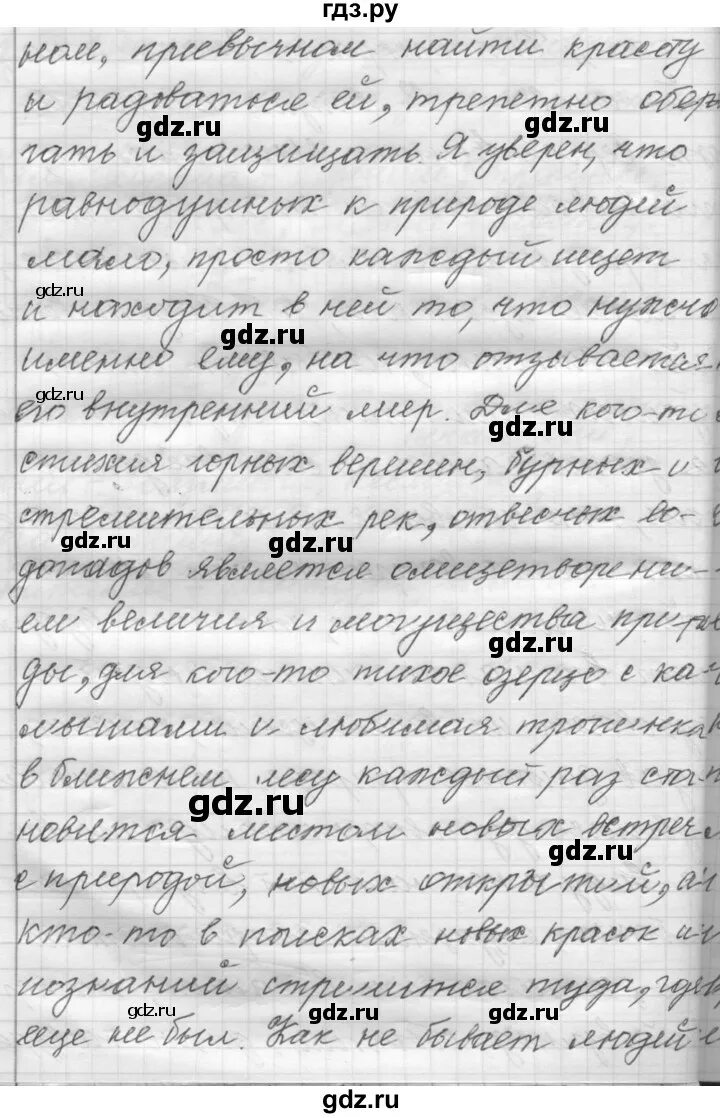 гдз.ру
ном, привычном найти красоту
и радоваться ей, трепетно обере
gdz.ru gdz.ru
гать и защищать. Я уверен, что
равнодушных к природе людей
мало, просто каждый ищет
gdz.ru
и находит в ней то, что нужно
gdz.ru
именно ему, на что отзывается
gdz.ru
его внутренний мир. Для кого-то
gdz.ru
стихия горных вершин, бурных и
стремительных рек, отвесных во-
gdz.ru gdz.ru
допадов является олицетворени-
ем величия и могущества приро
gdz.ru
ды, для кого-то тихое озерцо с ка-
мышами и любимая тропинка
в ближнем лесу каждый раз ста-
gdz.ru
новится местом новых встреч
gdz.ru
с природой, новых открытий, а
кто-то в поисках новых красок и
познаний стремится туда, где
gdz.ru gdz.ru gdz.ru
еще не был. Как не бывает людей
гдз.ру